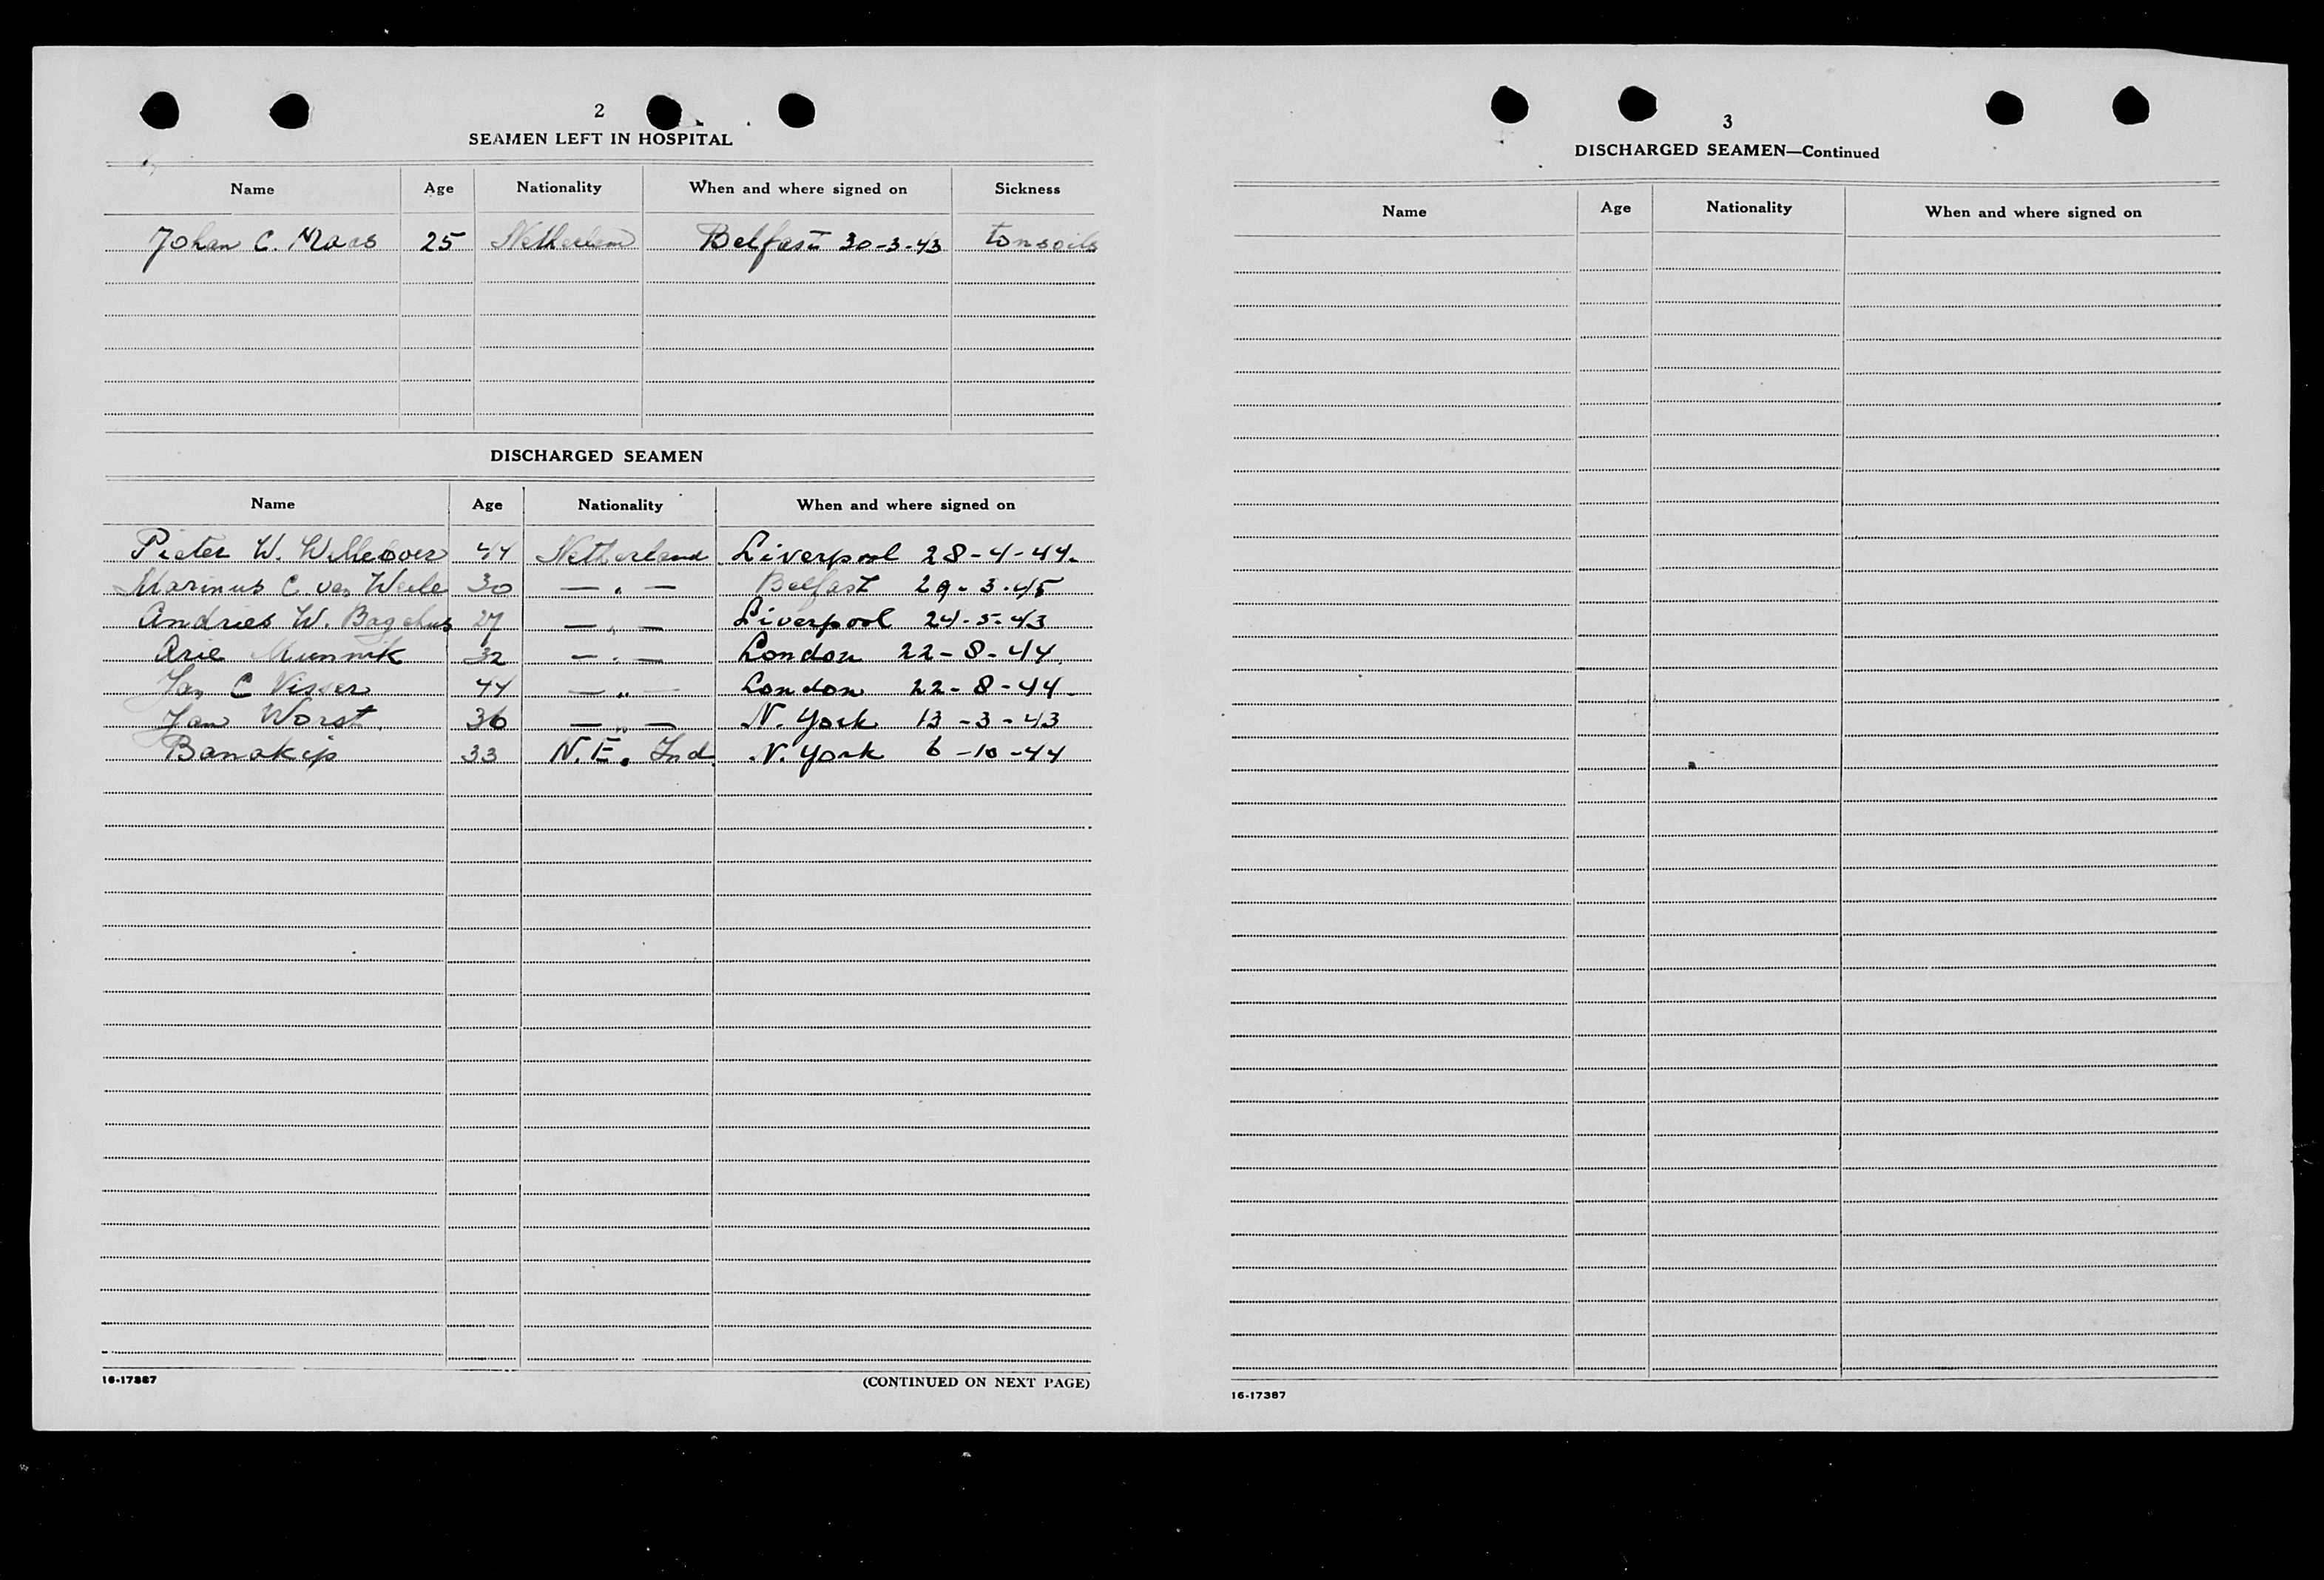 2
SEAMEN LEFT IN HOSPITAL
Name Age Nationality When and where signed on Sickness
Johan C. Maas 25 Netherland Belfast 30-3-43 tonsoils
DISCHARGED SEAMEN
Name Age Nationality When and where signed on
Pieter W. 44 Netherland Liverpool 28-4-44.
Marinus C. van Weele 30 — „ — Belfast 29-3-45
Andries W. Bagchus 27 — „ — Liverpool 24-5-43
Arie Munnik 32 — „ — London 22-8-44.
Jan C Visser 44 — „ — London 22-8-44-
Jan Worst. 36 — „ — N. York 13-3-43
Banakip 33 N.E. Ind. N. York 6-10-44
16-17387
(CONTINUED ON NEXT PAGE)
3
DISCHARGED SEAMEN—Continued
Name Age Nationality When and where signed on
16-17387